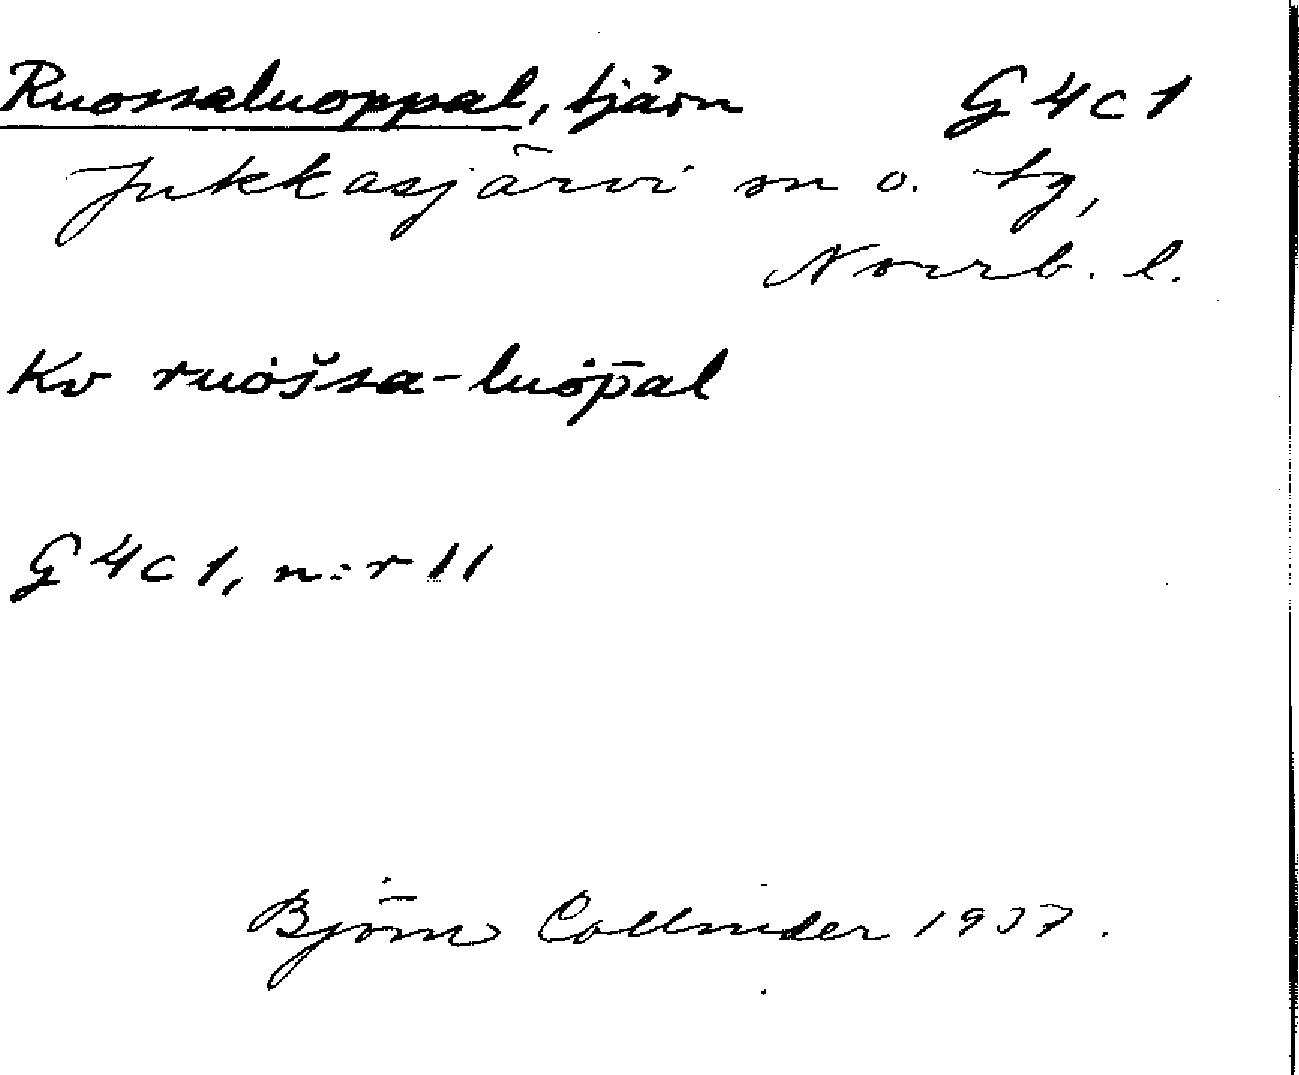 Ruossaluoppal, tjärn G 4 c 1
Jukkasjärvi sn o. tg,
Norrb. l.
Kv ruȯšsa-luȯp̄al
G 4 c 1, n:r 11
Björn Collinder 1937.